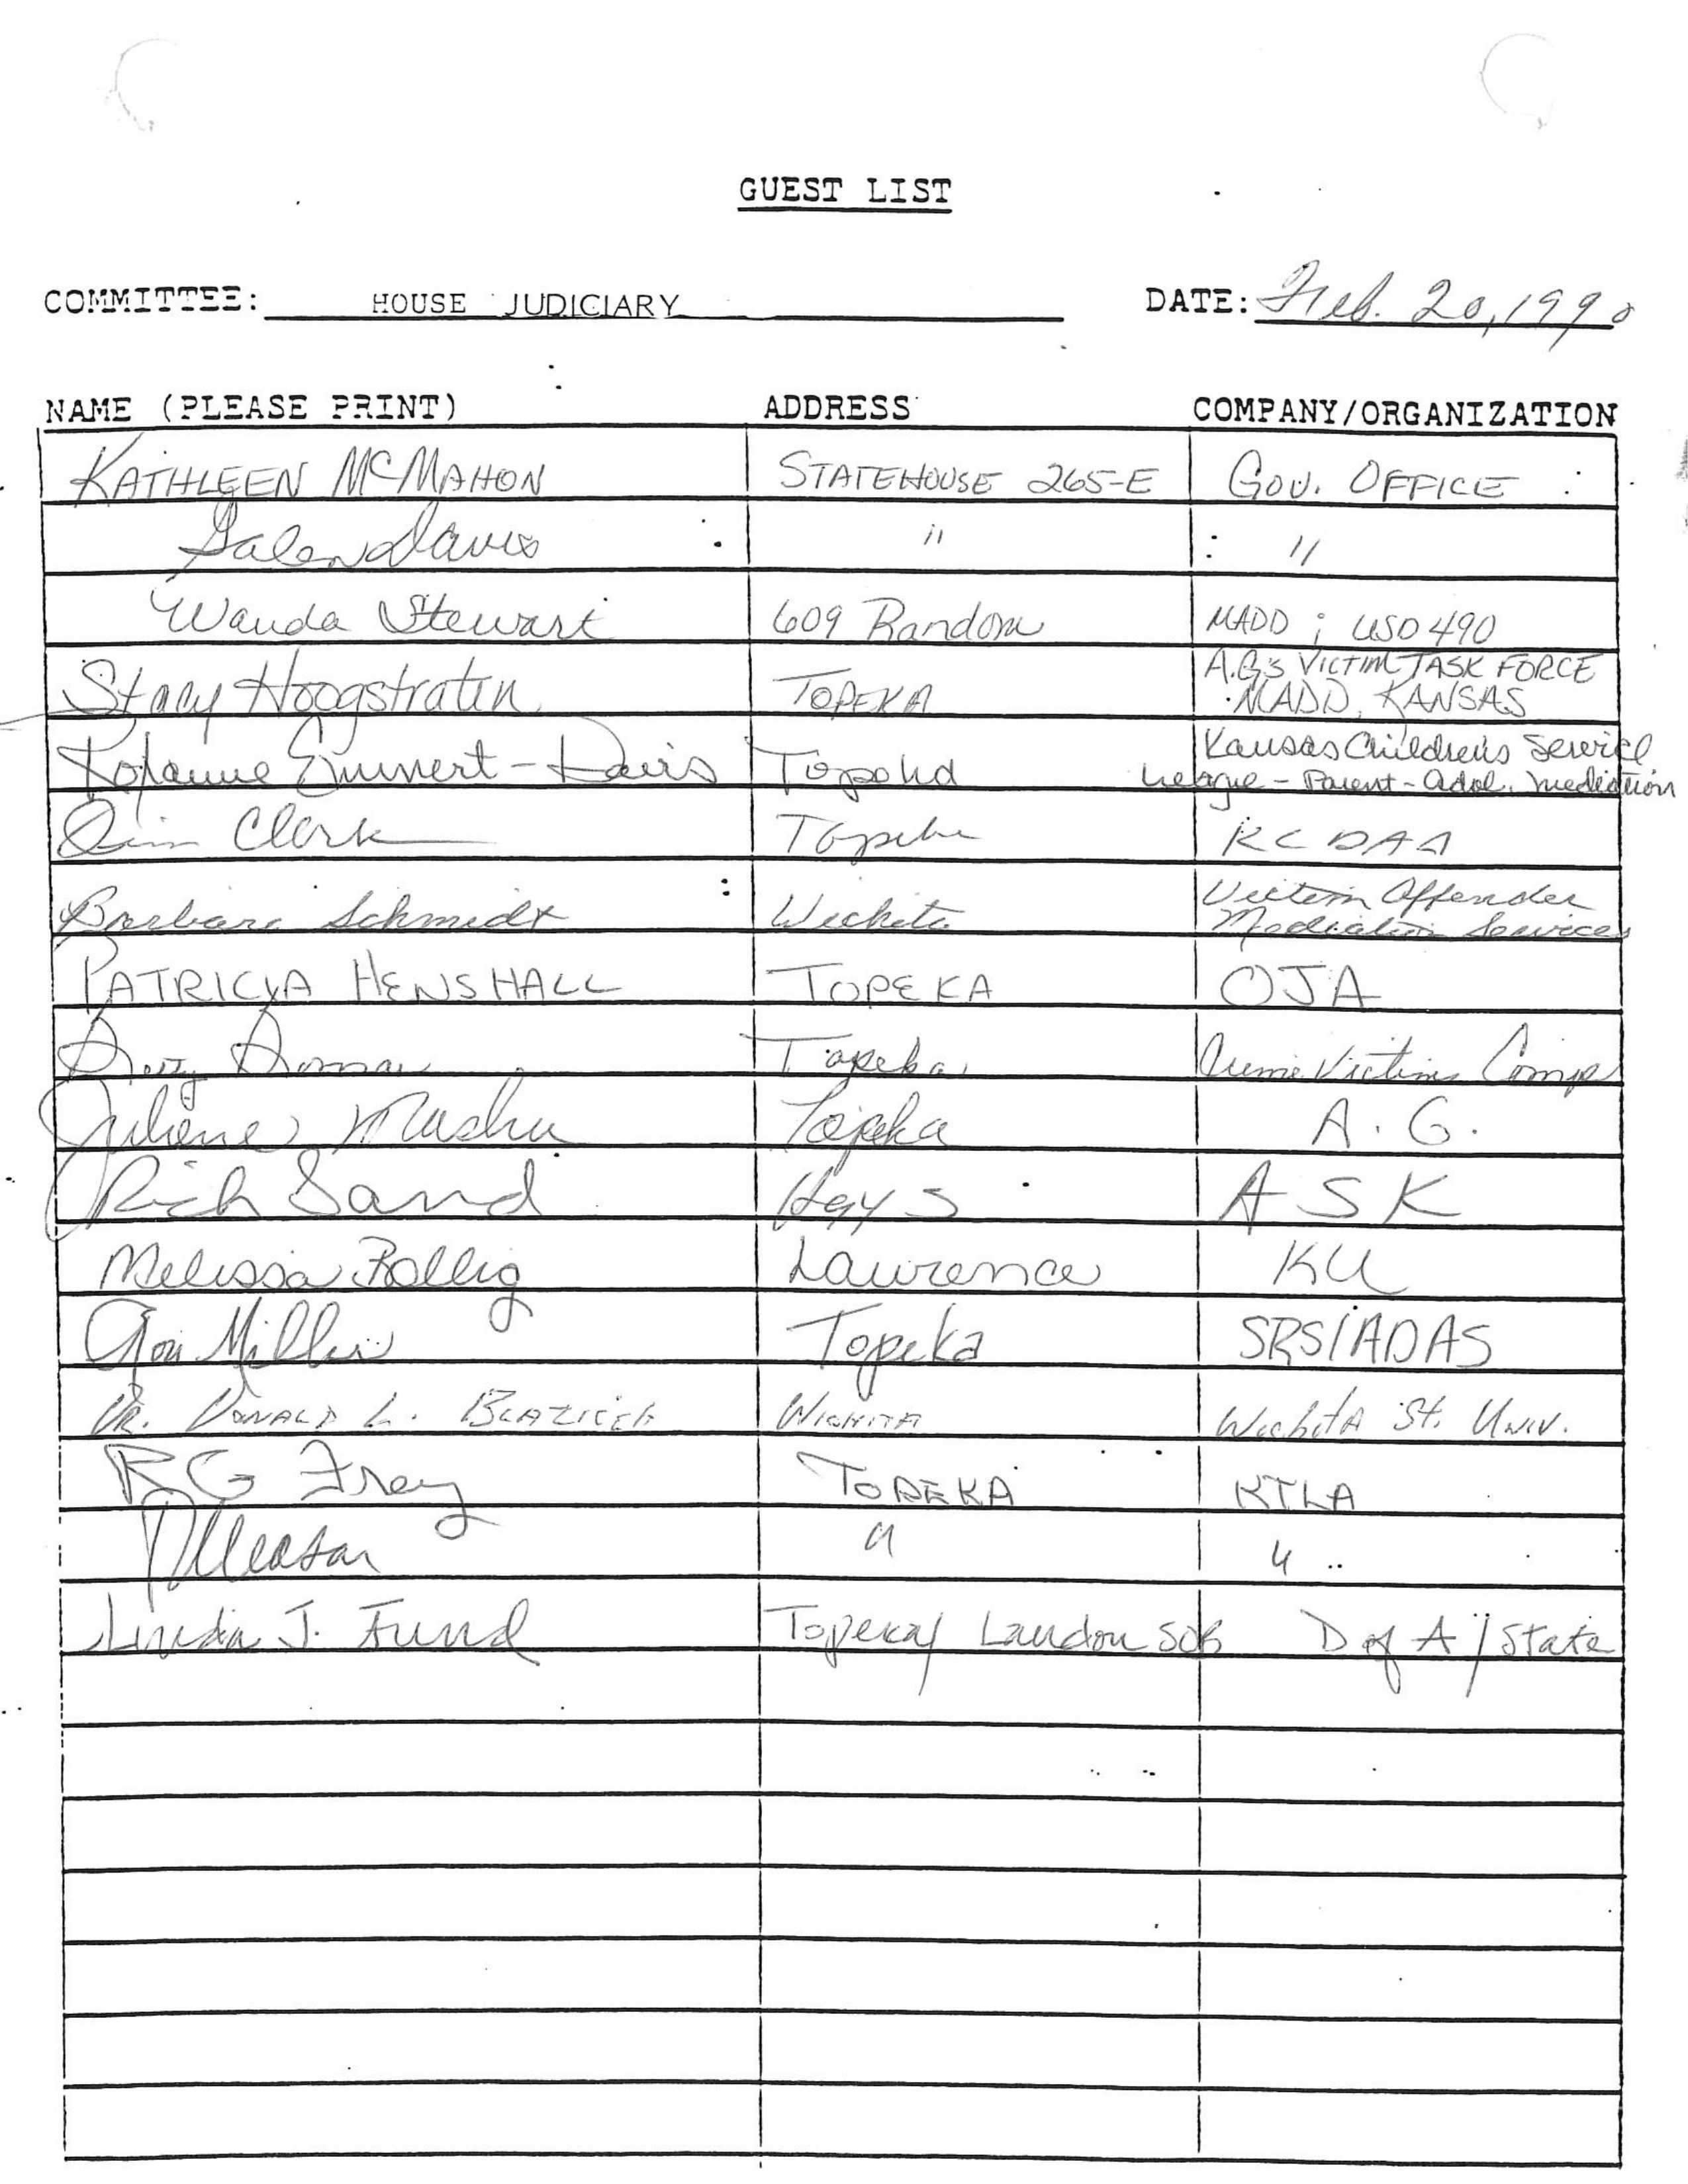 GUEST LIST
COMMITTEE: HOUSE JUDICIARY DATE: Feb. 20, 1990
NAME (PLEASE PRINT) ADDRESS COMPANY/ORGANIZATION
KATHLEEN McMAHON STATEHOUSE 265-E GOV. OFFICE
Galen Davis " "
Wanda Stewart 609 Random MADD ; USD 490
Stacy Hoogstraten TOPEKA A.G's VICTIM TASK FORCE
MADD, KANSAS
Emmert-Davis Topeka Kansas Children's Service
League - Parent-Adol. Mediation
Jim Clark Topeka KCDAA
Barbara Schmidt Wichita Victim Offender
Mediation Services
PATRICIA HENSHALL TOPEKA OJA
Topeka Crime Victims Comp
Juliene Topeka A.G.
Rich Sand Hays ASK
Melissa Bollig Lawrence KU
Miller Topeka SRS/ADAS
DR. DONALD L. WICHITA Wichita St. Univ.
RG Frey TOPEKA KTLA
" "
Linda J. Fund Topeka/ Landon SOB D of A / State